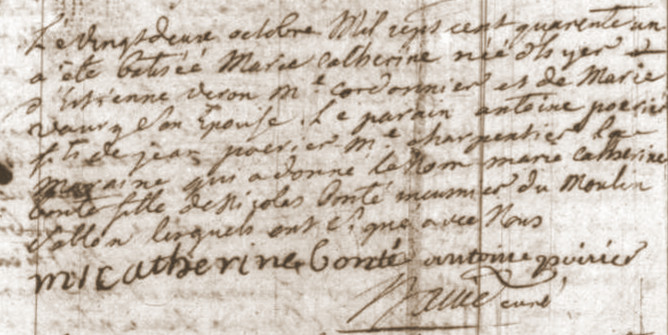 Le vingt deux octobre Mil sept cent quarente un
a été batisée Marie Catherine née d'hyer
d'Estienne veron me cordonnier et de Marie
son Epouse. Le parain antoine poerier
fils de jean poerier me charpentier la
maraine qui a donné le Nom marie catherine
bonté fille de Nicolas bonté meusnier du Moulin
lesquels ont signé avec Nous
m catherine bonté antoine poirier
curé